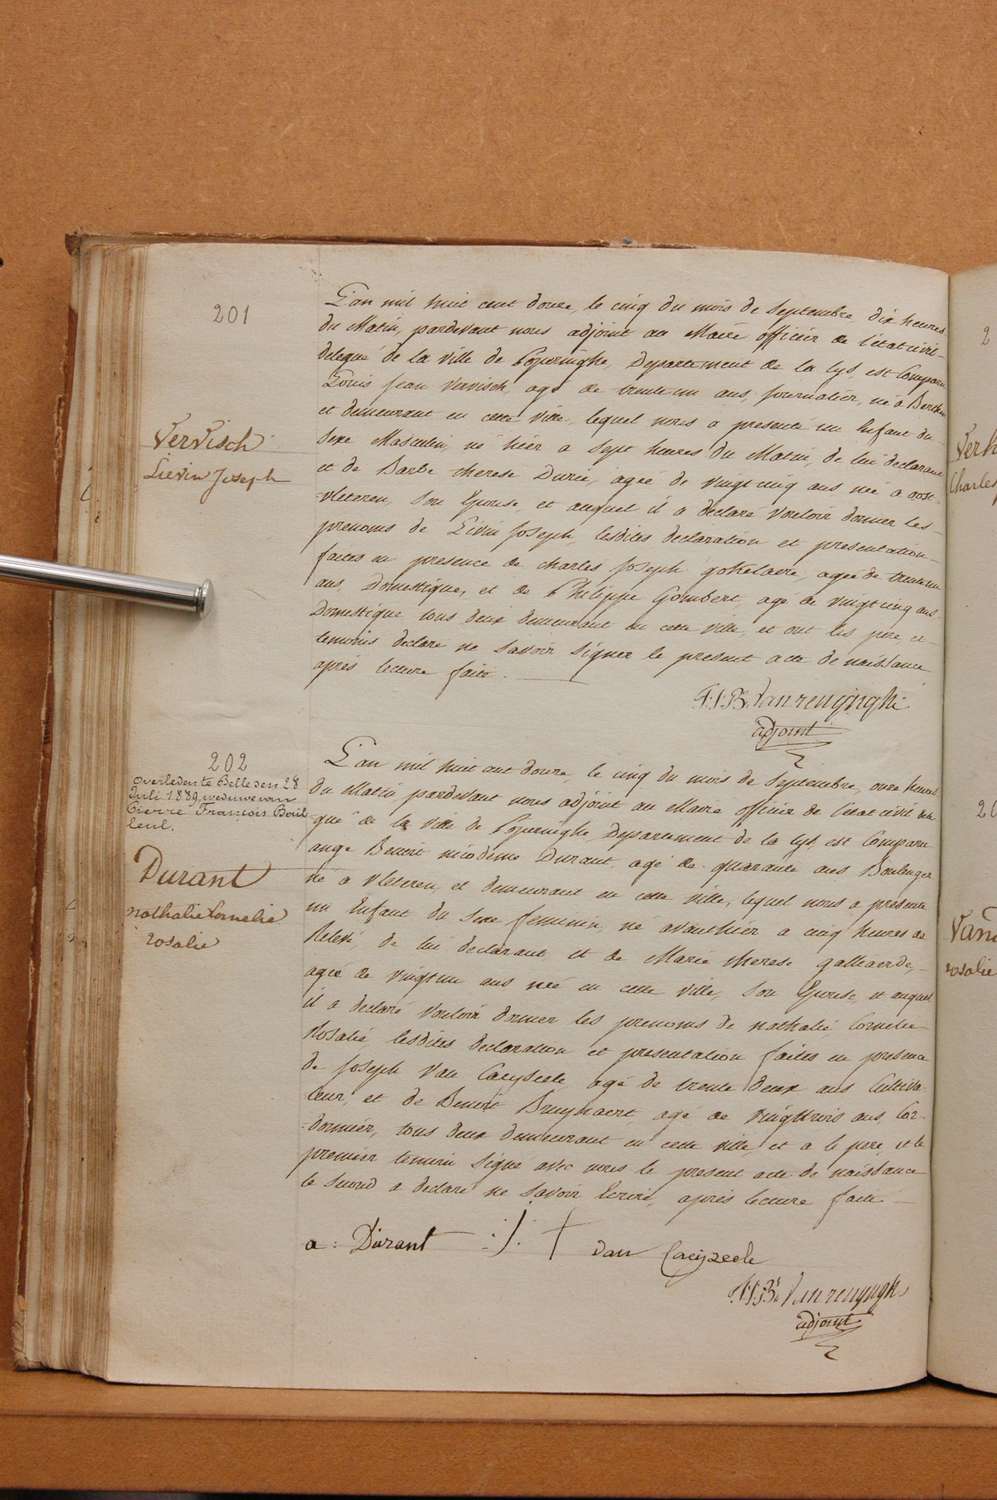 201
Vervisch
Lievin Joseph
L'an mil huit cent douze, le cinq du mois de Septembre dix heures
du Matin, pardevant nous adjoint au Maire officier de l'état civil
délégué de la ville de Poperinghe, Departement de la Lys est Comparu
Louis Jean Vervisch, agé de trente un ans, journalier, né à
et demeurant en cette ville, lequel nous a presenté un Enfant du
Sexe Masculin, né hier a Sept heures du Matin, de lui declarant
et de Barbe therese Durie, agée de vingt cinq ans née a oost-
vleteren, Son Epouse, et auquel il a déclaré Vouloir donner les
prenoms de Livin Joseph, lesdites declaration et presentation
faites en presence de charles Joseph gokelaere, agée de trente un
ans, Domestique, et de Philippe Gombert agé de vingt cinq ans
Domestique tous deux demeurant en cette ville, et ont les pere et
temoins declaré ne Savoir Signer le present acte de naissance
après lecture faite.
F:J:B: Vanrenynghe
adjoint
202
Overleden te Belle den 28
Juli 1889 weduwe van
Pierre François Boul
leul.
Durant
nathalie Cornelie
rosalie
L'an mil huit cent douze, le cinq du mois de Septembre, onze heures
du Matin pardevant nous adjoint au Maire officier de l'état civil délé
gué de la ville de Poperinghe Departement de la Lys est Comparu
ange Benoit nicodeme Durant agé de quarante ans Boulenger
né a Vleteren, et demeurant en cette ville, lequel nous a présenté
un Enfant du Sexe feminin, né avanthier a cinq heures de
Relevé, de lui declarant et de Marie therese
agée de vingt un ans née en cette ville, Son Epouse, et auquel
il a declaré Vouloir donner les prenoms de nathalie Cornelie
Rosalie lesdites declaration et presentation faites en presence
de Joseph Van Caeyseele agé de trente deux ans Cultiva-
teur, et de Benoit Bruynaert, agé de vingt trois ans, Cor-
donnier, tous deux demeurant en cette ville, et a le pere et le
premier temoin Signé avec nous le present acte de naissance
le Second a declaré ne Savoir Ecrire, après lecture faite
a: Durant van Caeyzeele
F:J:B: Vanrenynghe
adjoint
2
Verh
Charles
2
Van
rosalie